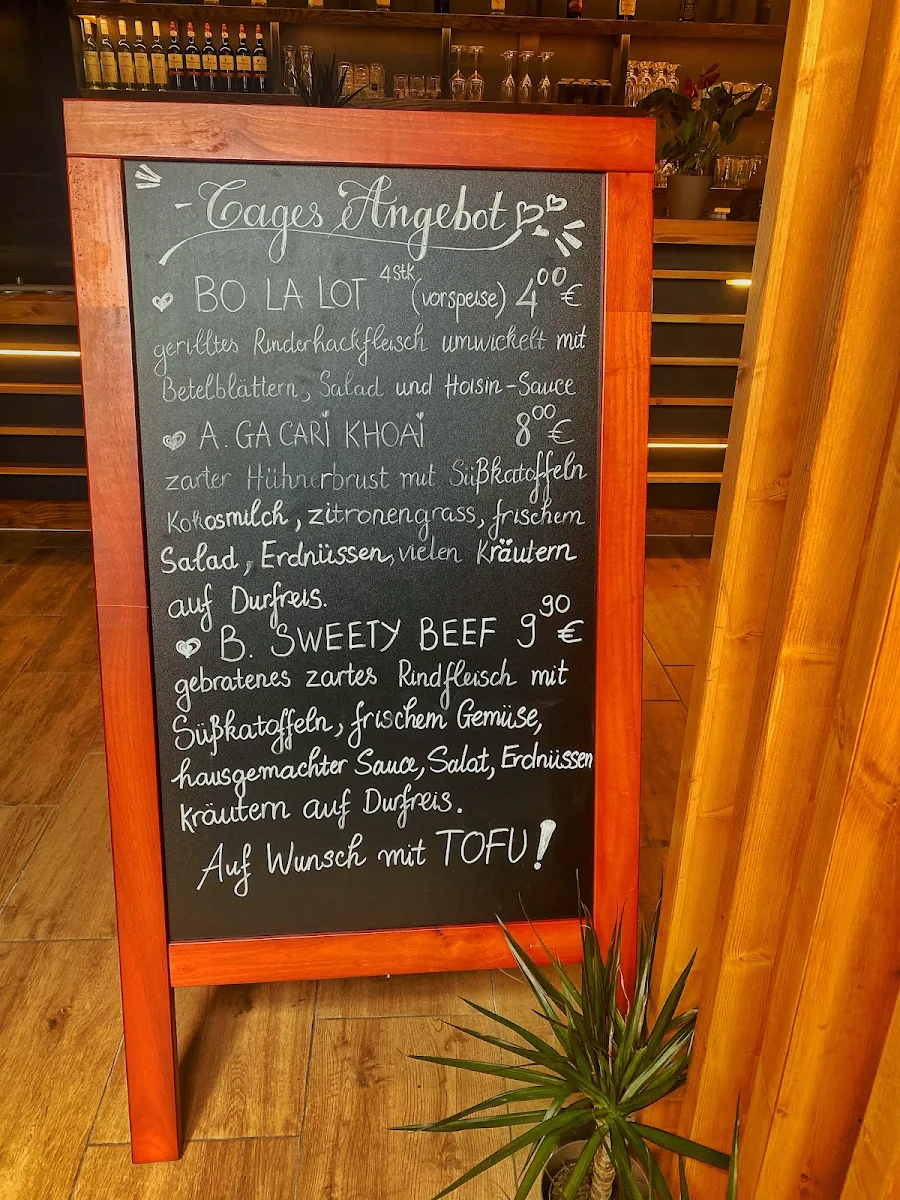 - Tages Angebot
BO LA LOT 4 Stk (vorspeise) 4,00 €
gerilltes Rinderhackfleisch umwickelt mit
Betelblättern, Salad und Hoisin-Sauce
A. GA CARI KHOAI 8,00 €
zarter Hühnerbrust mit Süßkatoffeln
Kokosmilch, zitronengrass, frischem
Salad, Erdnüssen, vielen Kräutern
auf Durfreis.
B. SWEETY BEEF 9,90 €
gebratenes zartes Rindfleisch mit
Süßkatoffeln, frischem Gemüse,
hausgemachter Sauce, Salat, Erdnüssen
Kräutern auf Durfreis.
Auf Wunsch mit TOFU!